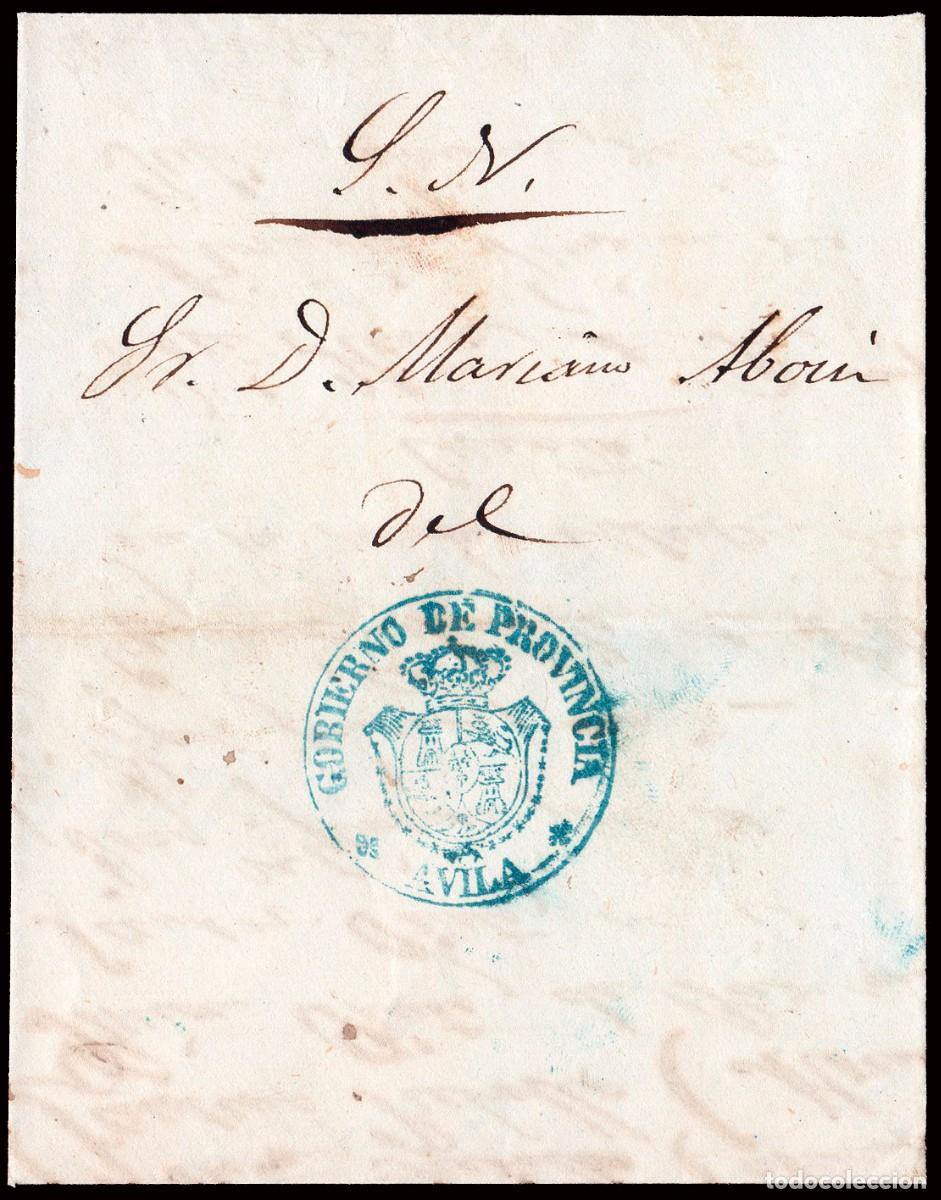 S. N.
Sr. D. Mariano Aboin
del
GOBIERNO DE PROVINCIA
AVILA
todocoleccion